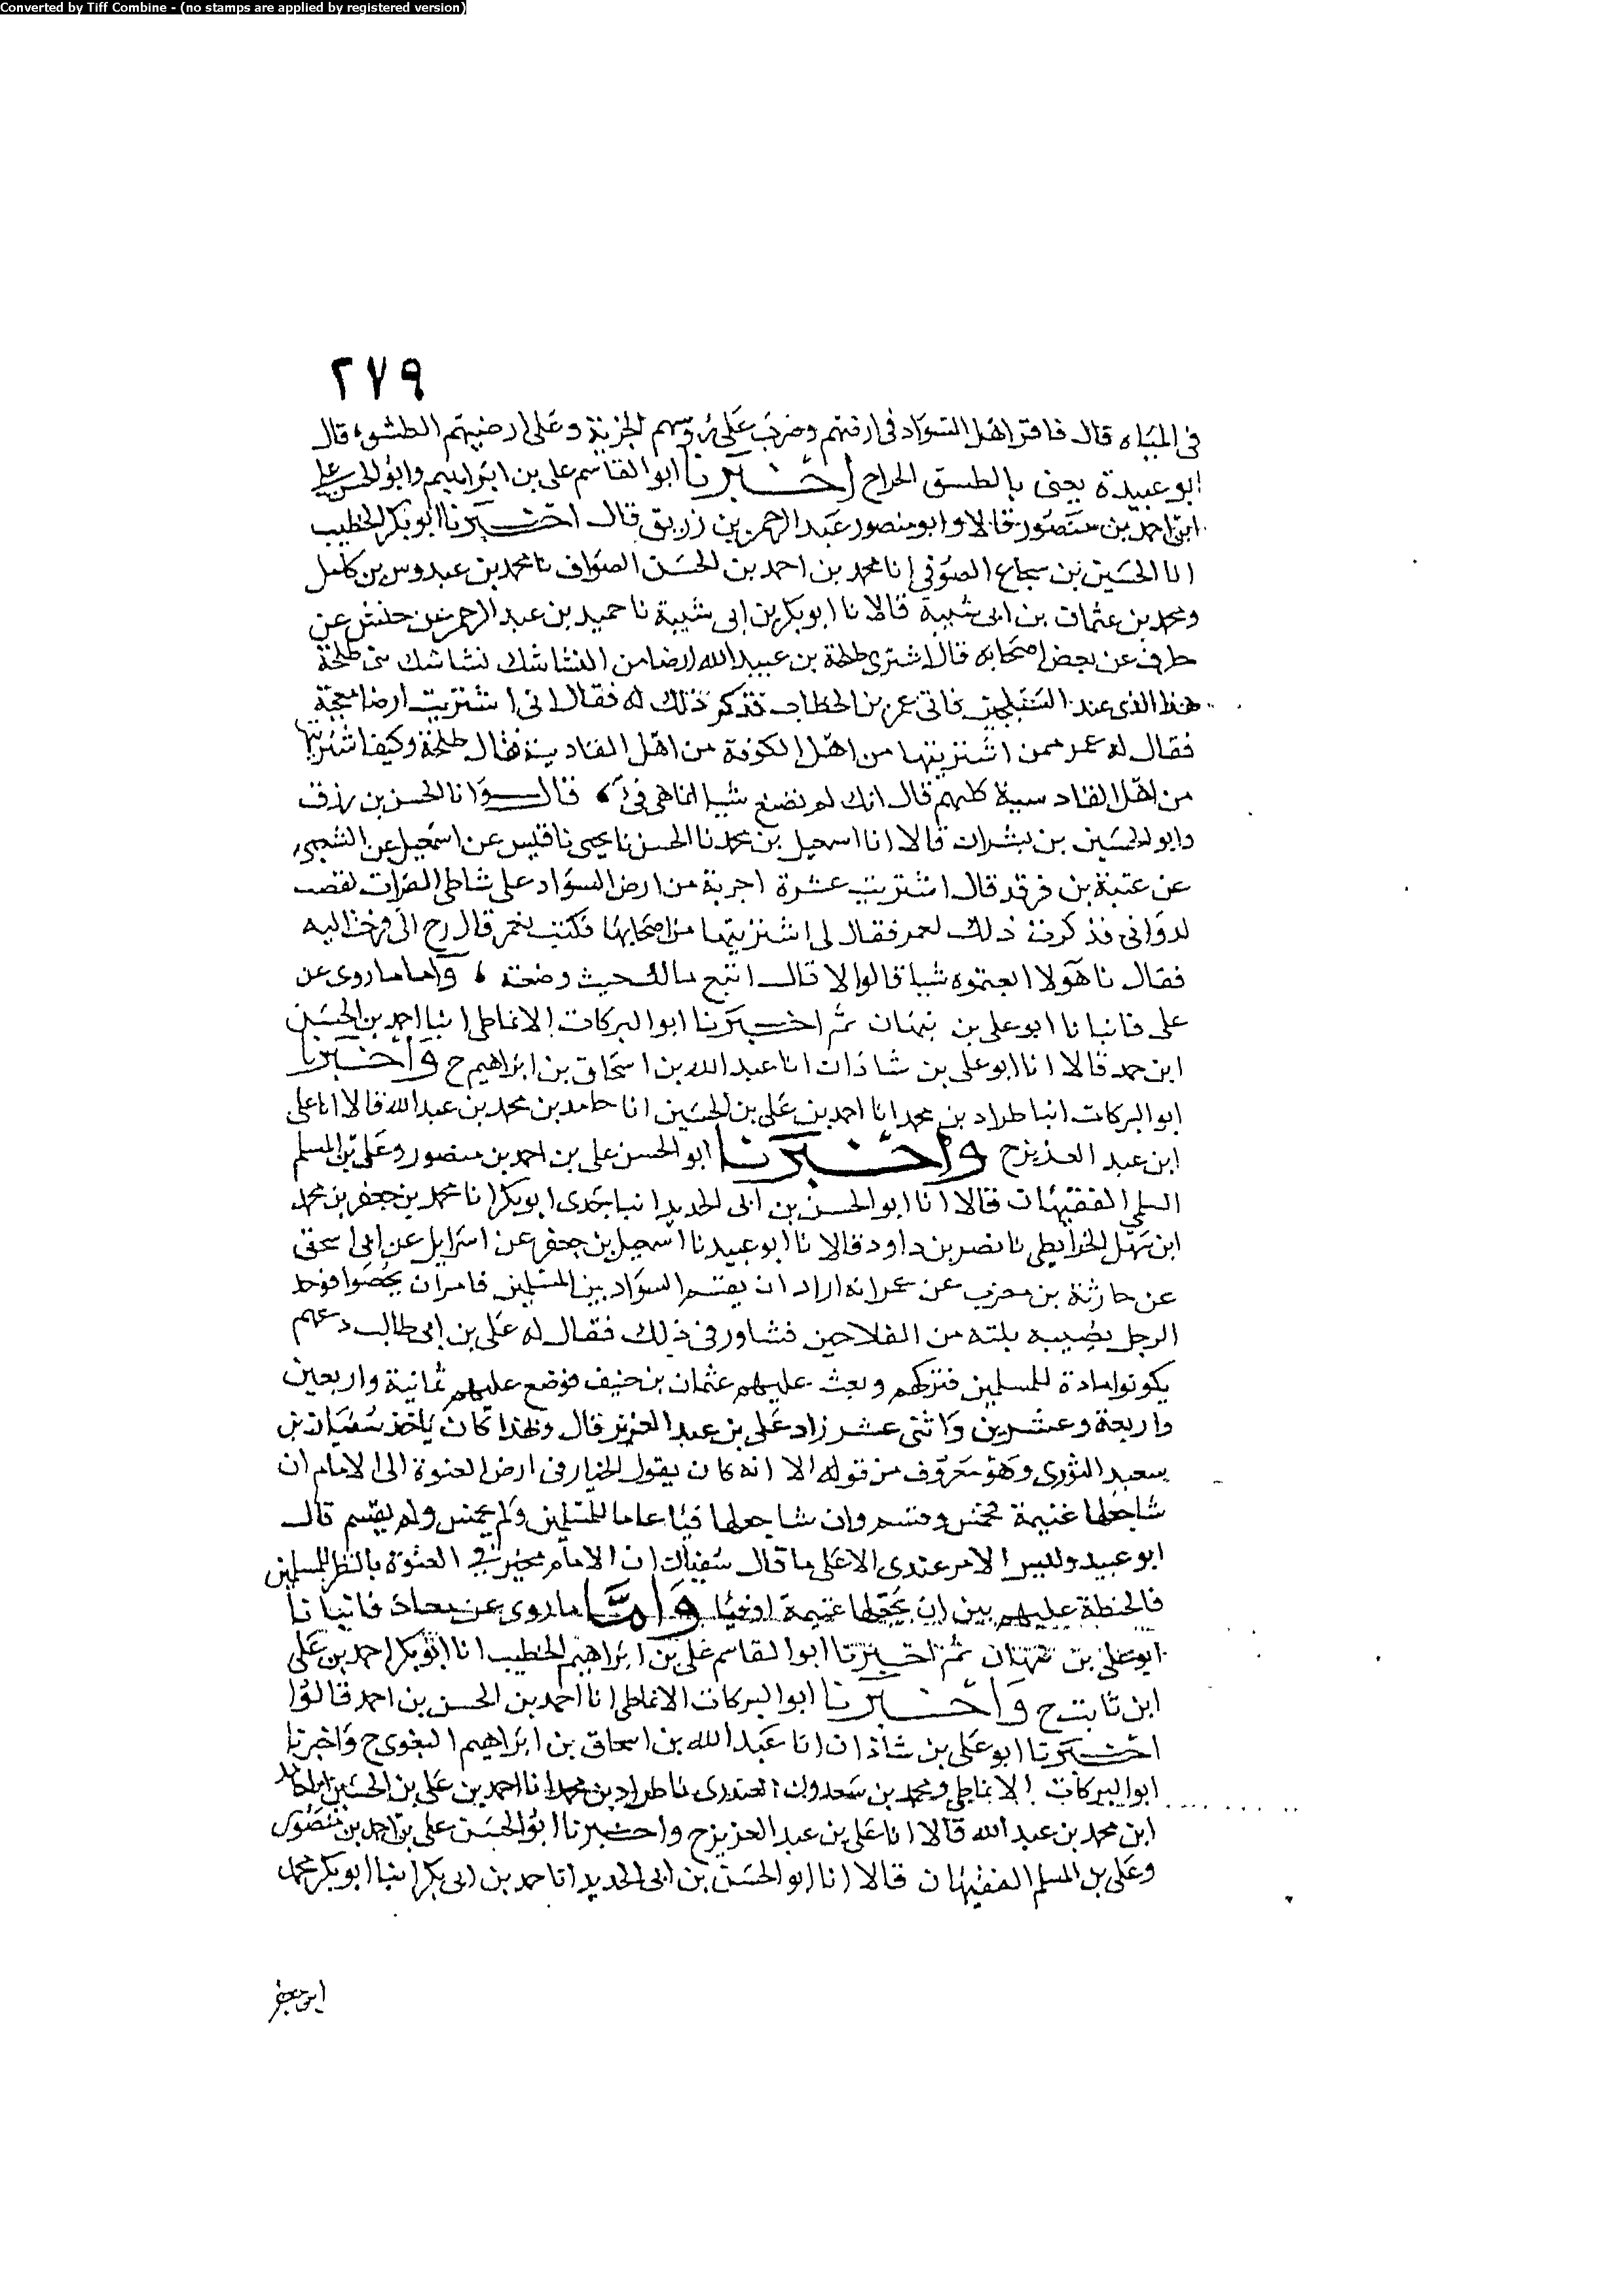 Converted by Tiff Combine - (no stamps are applied by registered version)
٢٧٩
في المياه قال فاقر اهل السواد في ارضهم وضرب على رؤسهم الجزية وعلى ارضيهم الطسق، قال
ابو عبيدة يعني بالطسق الخراج اخبرنا ابو القاسم علي بن ابراهيم وابو الحسن علي
ابن احمد بن منصور قالا وابو منصور عبد الرحمن بن زريق قال اخبرنا ابو بكر الخطيب
انا الحسين بن شجاع الصوفي انا محمد بن احمد بن الحسن الصواف نا محمد بن عبدوس بن كامل
ومحمد بن عثمان بن ابي شيبة قالا نا ابو بكر بن ابي شيبة نا حميد بن عبد الرحمن عن حنش عن
طرف عن بعض اصحابه قال اشترى طلحة بن عبيد الله ارضا من النشاشتك نشاشتك بني طلحة
هذا الذي عند السيلحين فاتى عمر بن الخطاب فذكر ذلك له فقال اني اشتريت ارضا معجبة
فقال له عمر ممن اشتريتها من اهل الكوفة من اهل القادسية فقال طلحة وكيف اشتريتها
من اهل القادسية كلهم قال انك لم تصنع شيا انما هي فئ، قال وانا الحسن بن رزق
وابو الحسين بن بشران قالا انا اسمعيل بن محمد نا الحسن نا يحيى نا قيس عن اسمعيل عن الشعبي
عن عتبة بن فرقد قال اشتريت عشرة اجربة من ارض السواد على شاطى الفرات لقضب
لدوابي فذكرت ذلك لعمر فقال لي اشتريتها من اصحابها فكتب نعم قال رح الي فرحت اليه
فقال نا هؤلا ابعتموه شيا قالوا لا قال ابتغ مالك حيث وضعته، واما ما روى عن
على فانبا نا ابو علي بن نبهان ثم اخبرنا ابو البركات الانماطي انبا احمد بن الحسين
ابن حمد قالا انا ابو علي بن شاذان انا عبد الله بن اسحاق بن ابراهيم ح واخبرنا
ابو البركات انبا طراد بن محمد انا احمد بن علي بن الحسين انا حامد بن محمد بن عبد الله قالا انا علي
ابن عبد العزيز ح واخبرنا ابو الحسن علي بن احمد بن منصور وعلي بن المسلم
السلمي الفقيهان قالا انا ابو الحسن بن ابي الحديد انبا جدي ابو بكر انا محمد بن جعفر بن محمد
ابن سهل الخرايطي نا نصر بن داود قالا نا ابو عبيد نا اسمعيل بن جعفر عن اسرايل عن ابي اسحق
عن حارثة بن مضرب عن عمر انه اراد ان يقسم السواد بين المسلمين فامر ان يحصوا فوجد
الرجل يصيبه ثلثه من الفلاحين فشاور في ذلك فقال له علي بن ابي طالب دعهم
يكونوا مادة للمسلمين فتركهم وبعث عليهم عثمان بن حنيف فوضع عليهم ثمانية واربعين
واربعة وعشرين واثني عشر زاد علي بن عبد العزيز قال ولهذا كان ياخذ سفيان بن
سعيد الثوري وهو معروف من قوله الا انه كان يقول الخيار في ارض العنوة الى الامام ان
شا جعلها غنيمة فخمس وقسم وان شا جعلها فيا عاما للمسلمين ولم يخمس ولم يقسم قال
ابو عبيد وليس الامر عندي الا على ما قال سفيان ان الامام مخير في العنوة بالنظر للمسلمين
فالحنطة عليهم بين ان يجعلها غنيمة او فيا واما ما روى عن معاذ فانبانا
ابو علي بن نبهان ثم اخبرنا ابو القاسم علي بن ابراهيم الخطيب انا ابو بكر احمد بن علي
ابن ثابت ح واخبرنا ابو البركات الانماطي انا احمد بن الحسن بن احمد قالوا
اخبرنا ابو علي بن شاذان انا عبد الله بن اسحاق بن ابراهيم البغوي ح واخبرنا
ابو البركات الانماطي ومحمد بن سعدون العبدري نا طراد بن محمد انا احمد بن علي بن الحسين انا حامد
ابن محمد بن عبد الله قالا انا علي بن عبد العزيز ح واخبرنا ابو الحسن علي بن احمد بن منصور
وعلي بن المسلم الفقيهان قالا انا ابو الحسن بن ابي الحديد انا حمد بن ابي بكر انبا ابو بكر محمد
ابن جعفر